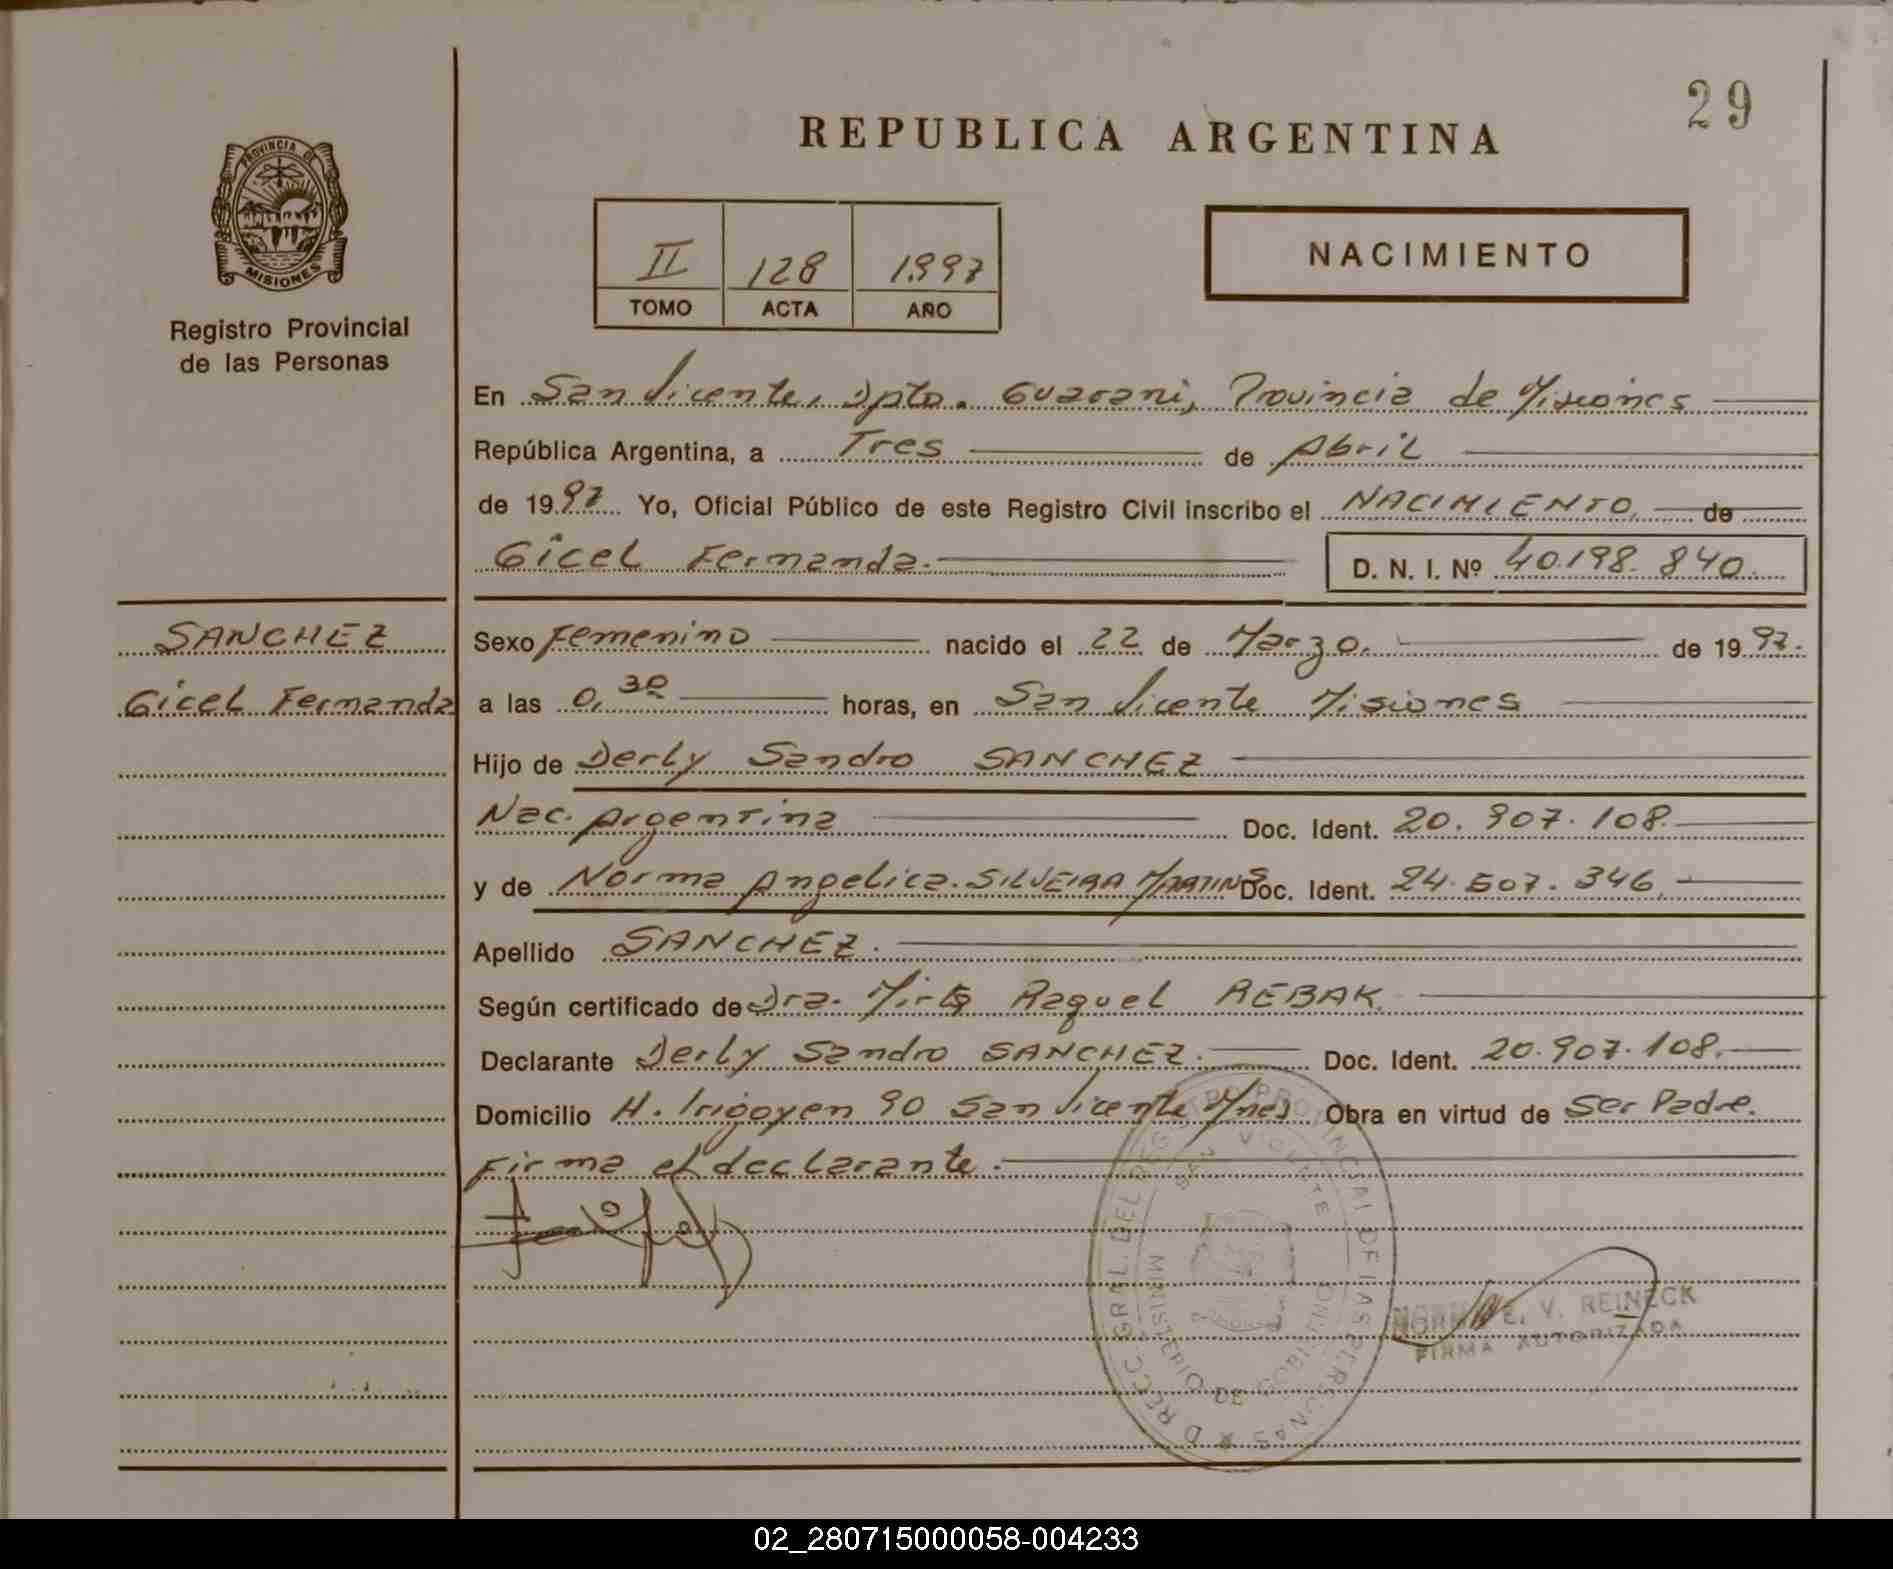 29
REPUBLICA ARGENTINA
PROVINCIA DE
MISIONES
Registro Provincial
de las Personas
II 128 1997
TOMO ACTA AÑO
NACIMIENTO
En San Vicente, Dpto. Guarani, Provincia de Misiones
República Argentina, a Tres de Abril
de 1997 Yo, Oficial Público de este Registro Civil inscribo el NACIMIENTO de
Gicel Fernanda. D. N. I. Nº 40.198.840.
SANCHEZ
Gicel Fernanda
Sexo Femenino nacido el 22 de Marzo. de 1997.
a las 0,30 horas, en San Vicente Misiones
Hijo de Derly Sandro SANCHEZ
Nac. Argentina Doc. Ident. 20.907.108.
y de Norma Angelica. SILVEIRA MARTINS Doc. Ident. 24.507.346.
Apellido SANCHEZ.
Según certificado de Dra. Mirta Raquel REBAK.
Declarante Derly Sandro SANCHEZ. Doc. Ident. 20.907.108.
Domicilio H. Irigoyen 90 San Vicente Mnes Obra en virtud de Ser Padre.
Firma el declarante.
SAN VICENTE
MINISTERIO DE GOBIERNO
V. REINECK
FIRMA AUTORIZADA
02_280715000058-004233